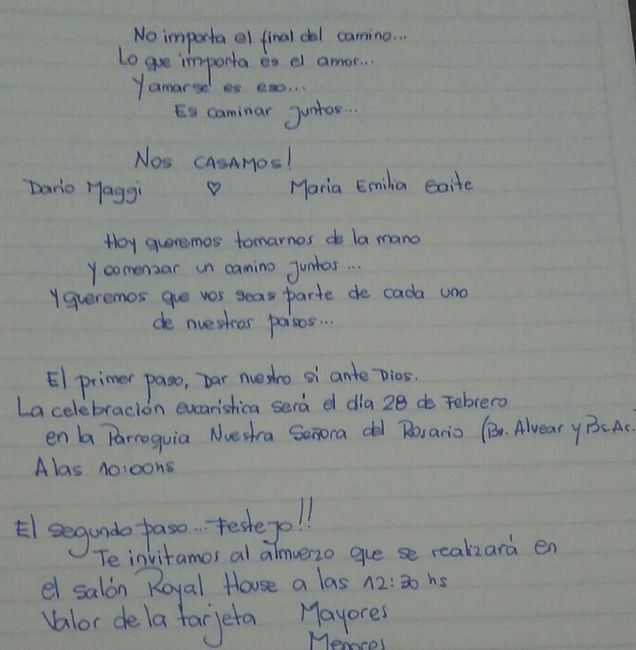 No importa el final del camino...
Lo que importa es el amor...
Y amarse es eso...
Es caminar juntos...
Nos CASAMOS!
Dario Maggi ♡ Maria Emilia Gaite
Hoy queremos tomarnos de la mano
y comenzar un camino juntos...
Y queremos que vos seas parte de cada uno
de nuestros pasos...
El primer paso, Dar nuestro si ante Dios.
La celebración eucarística será el día 28 de Febrero
en la Parroquia Nuestra Señora del Rosario (Bv. Alvear y Bs.As.
A las 10:00hs
El segundo paso... Festejo!!
Te invitamos al almuerzo que se realizará en
el salón Royal House a las 12:30 hs
Valor de la tarjeta Mayores
Menores